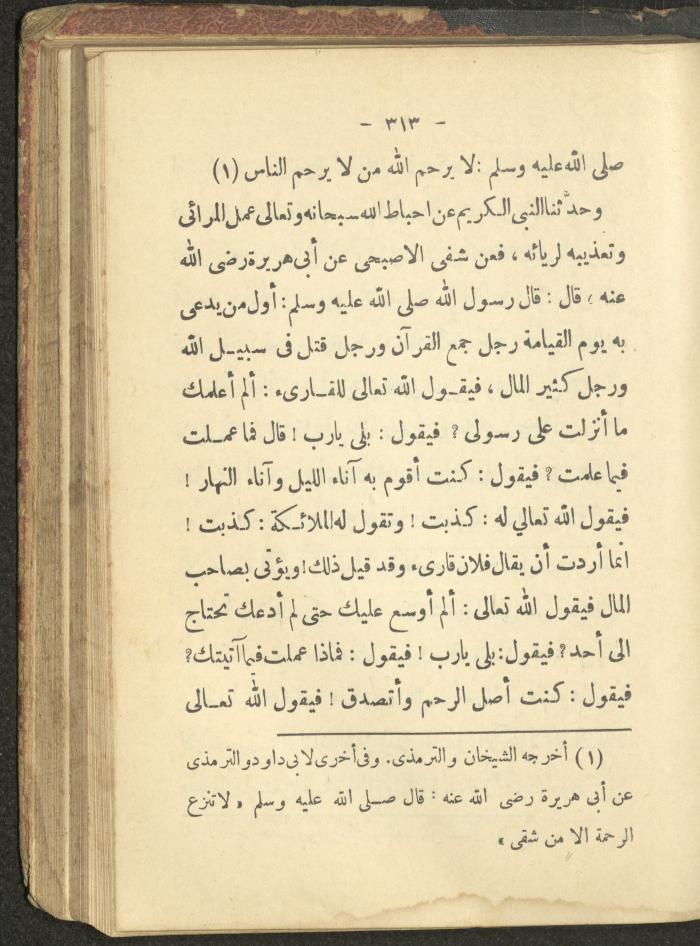 - ٣١٣ -
صلى الله عليه وسلم : لا يرحم الله من لا يرحم الناس (١)
وحدثنا النبى الكريم عن احباط الله سبحانه وتعالى عمل المرائى
وتعذيبه لريائه ، فعن شفى الاصبحى عن أبى هريرة رضى الله
عنه ، قال : قال رسول الله صلى الله عليه وسلم : أول من يدعى
به يوم القيامة رجل جمع القرآن ورجل قتل فى سبيل الله
ورجل كثير المال ، فيقول الله تعالى للقارىء : ألم أعلمك
ما أنزلت على رسولى ؟ فيقول : بلى يارب ! قال فما عملت
فيما علمت ؟ فيقول : كنت أقوم به آناء الليل وآناء النهار !
فيقول الله تعالي له : كذبت ! وتقول له الملائكة : كذبت !
انما أردت أن يقال فلان قارىء وقد قيل ذلك ! ويؤتى بصاحب
المال فيقول الله تعالى : ألم أوسع عليك حتى لم أدعك تحتاج
الى أحد ؟ فيقول : بلى يارب ! فيقول : فماذا عملت فيما آتيتك ؟
فيقول : كنت أصل الرحم وأتصدق ! فيقول الله تعالى
(١) أخرجه الشيخان والترمذى . وفى أخرى لابى داود والترمذى
عن أبى هريرة رضى الله عنه : قال صلى الله عليه وسلم « لا تنزع
الرحمة الا من شقى »